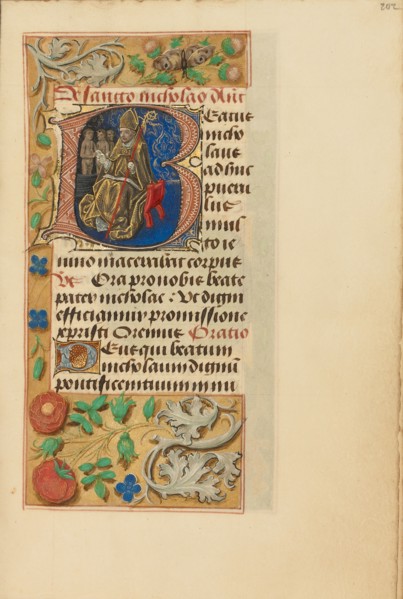 202
De sancto nicholao Ant
Beatus
nicho
laus
adhuc
pueru
lus
mul
to ie
iunio macerabat corpus
Vs Ora pro nobis beate
pater nicholae : Vt digni
efficiamur promissione
xpristi Oremus Oratio
Deus qui beatum
nicholaum dignum̄
pontificem tuum innu